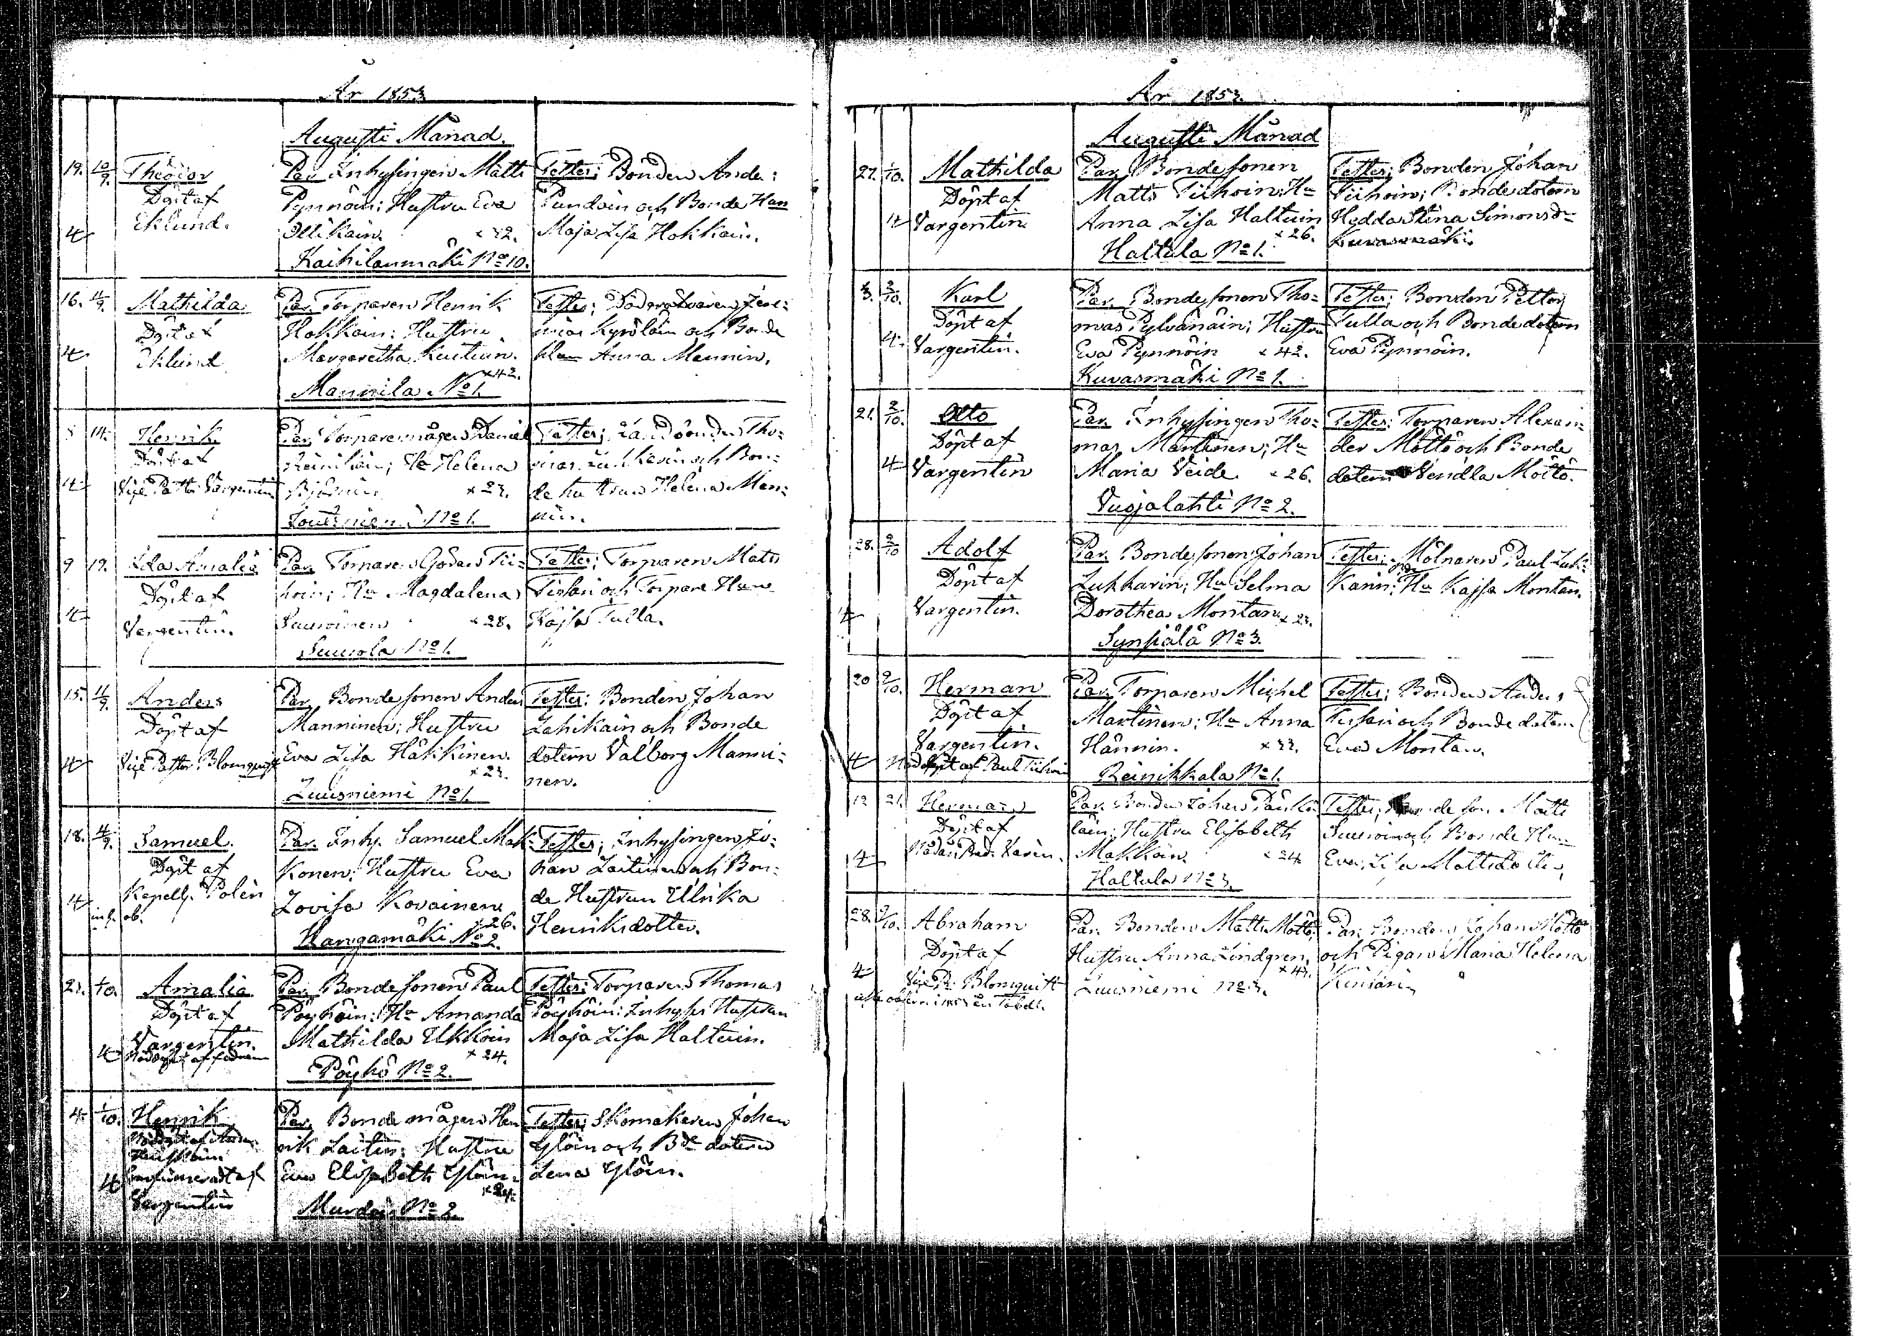 År 1853
Augusti Månad.
19. 10/9. Theodor
Döpt af
Eklund.
4
Par. Inhysingen Matts
Pynnöin; Hustru Eva
Ollikain. × 32.
Kaihilanmäki No 10.
Testes; Bonden Ande:
Pundoin och Bonde Hun
Maja Lisa Hokkain.
16. 11/9. Mathilda
Döpt af
Eklund
4
Par. Torparen Henrik
Hokkain; Hustru
Margaretha
× 42.
Mannila No 1.
Testes;
och Bonde
Anna Mannin.
8 14. Henrik
Döpt af
Vice Past. Vargentin
4
Par. Torparemågen Daniel
Hu Helena
× 23.
No 1.
Testes; Tho:
och Bon:
de hustrun Helena Man:
nin.
9 19. Ida Amalia
Döpt af
Vargentin.
4
Par. Torparen
Hu Magdalena
Suuroinen × 28.
Suurola No 1.
Testes; Torparen Matts
och Torpare Hun
Kajsa Tulla.
15. 11/9. Anders
Döpt af
Vice Pastor Blomquist
4
Par. Bondesonen Anders
Manninen; Hustru
Eva Lisa Häkkinen.
× 23.
Luusniemi No 1.
Testes; Bonden Johan
Lahikain och Bonde
dotern Valborg Manni:
nen.
18. 11/9. Samuel.
Döpt af
Kapell. Polén
4
Par. Inhy. Samuel Mak:
konen; Hustru Eva
Lovisa Kovainen
× 26.
Hangamäki No 2.
Testes; Inhysingen Jo:
han Laitinen och Bon:
de Hustrun Ulrika
Henriksdotter.
21. 1/10. Amalia
Döpt af
Vargentin.
4
Par. Bondesonen Paul
Pöyhöin; Hu Amanda
Mathilda Ukkoin
× 24.
Pöyhö No 2.
Testes; Torparen Thomas
Pöyhöin; Inhyses Hustrun
Maja Lisa Haltuin.
4. 1/10. Henrik
af
Vargentin
4
Par. Bondemågen Hen
rik Laitin; Hustru
Eva Elisabeth Ylöin.
× 24.
No 2.
Testes; Skomakaren Johan
Ylöin och Bde dotern
Lena Ylöin.
År 1853.
Augusti Månad
27. 1/10. Mathilda
Döpt af
Vargentin
4
Par. Bondesonen
Matts Tiihoin; Hu
Anna Lisa Haltuin
× 26.
Haltula No 1.
Testes; Bonden Johan
Tiihoin; Bondedotern
Hedda Stina Simonsdr
Kuvasmäki.
3. 2/10. Karl
Döpt af
Vargentin.
4.
Par. Bondesonen Tho:
mas Pylvänäin; Hustru
Eva Pynnöin × 42.
Kuvasmäki No 1.
Testes; Bonden Petter
Tulla och Bondedotern
Eva Pynnöin.
21. 2/10. Otto
Döpt af
Vargentin
4
Par. Inhysingen Tho:
mas Martinen; Hu
Maria Veide × 26.
Vuojalahti No 2.
Testes; Torparen Alexan:
der Möttö och Bonde
dotern Vendla Möttö.
28. 2/10 Adolf
Döpt af
Vargentin.
4
Par. Bondesonen Johan
Lukkarin; Hu Selma
Dorothea Montan × 23.
Synsiälä No 3.
Testes; Mölnaren Paul Luk:
karin; Hu Kajsa Montan.
20 9/10. Herman
Döpt af
Vargentin.
4 Nöddöpt af Paul
Par. Torparen Michel
Martinen; Hu Anna
Hännin. × 33.
Reinikkala No 1.
Testes; Bonden Anders
och Bondedotern
Eva Montan.
12 21. Herman
Döpt af
4
Par. Bonden Johan
Hustru Elisabeth
Makkoin × 24
Haltula No 3.
Testes; Bondeson Matts
och Bonde Hun
Eva Lisa Mattsdotter,
28. 9/10. Abraham
Döpt af
Vice P. Blomquist
4
Par. Bonden Matts Möttö;
Hustru Anna Lindgren,
× 43.
Luusniemi No 3.
Par. Bonden Johan Möttö
och Pigan Maria Helena